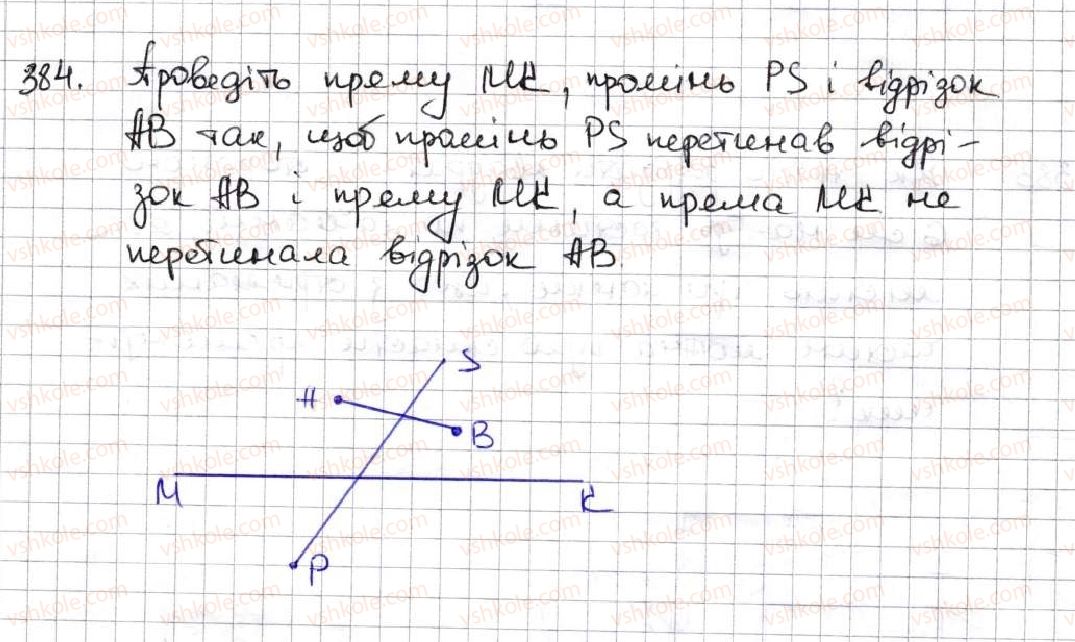 384. Проведіть пряму МК, промінь PS і відрізок
АВ так, щоб промінь PS перетинав відрі-
зок АВ і пряму МК, а пряма МК не
перетинала відрізок АВ.
S
А
В
М
К
Р
vshkole.com